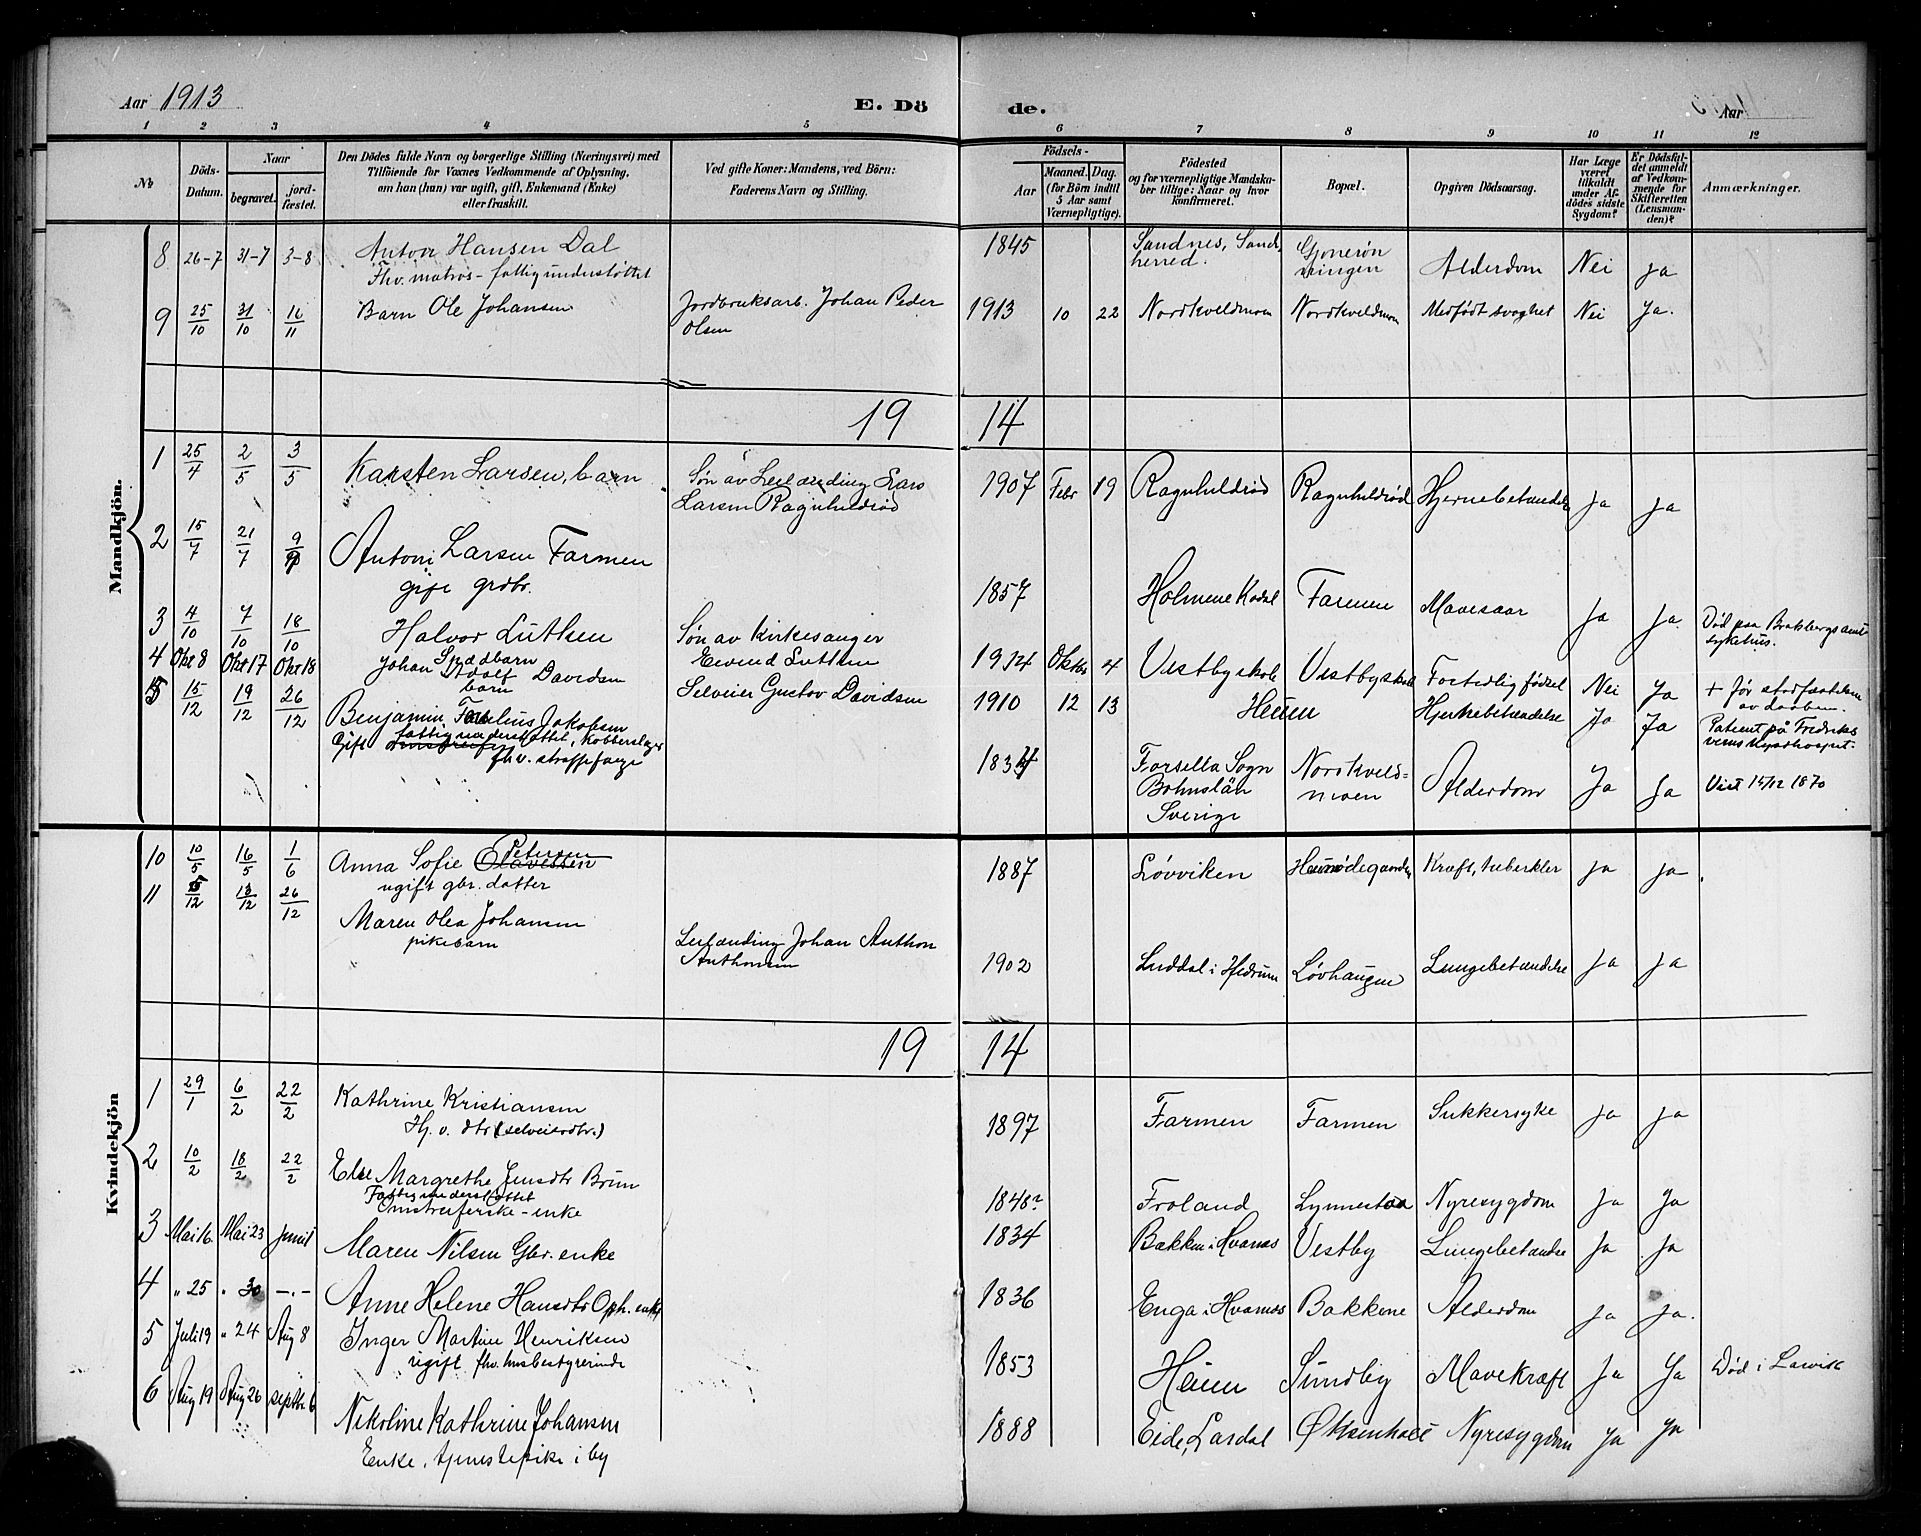 Aar 1913
E. Dö
de.
Aar
1 2 3 4 5 6 7 8 9 10 11 12
No
Döds-
Datum.
Naar
begravet.
jord-
fæstet.
Den Dödes fulde Navn og borgerlige Stilling (Næringsvei) med
Tilföiende for Voxnes Vedkommende af Oplysning,
om han (hun) var ugift, gift, Enkemand (Enke)
eller fraskilt.
Ved gifte Koner: Mandens, ved Börn:
Faderens Navn og Stilling.
Födsels-
Aar
Maaned. Dag.
(for Börn indtil
5 Aar samt
Værnepligtige).
Födested
og for værnepligtige Mandska-
ber tillige: Naar og hvor
konfirmeret.
Bopæl.
Opgiven Dödsaarsag.
Har Læge
været
tilkaldt
under Af-
dödes sidste
Sygdom?
Er Dödsfal-
det anmeldt
af Vedkom-
mende for
Skifteretten
(Lensman-
den)?
Anmærkninger.
Mandkjön.
8 26-7 31-7 3-8 Anton Hansen Dal 1845 Sandnes, Sande-
herred. Alderdom Nei ja
Fhv. matros - fattigunderstøttet
9 25/10 31/10 16/11 Barn Ole Johansen Jordbruksarb. Johan Peder 1913 10 22 Nordkveldmoen Nordkveldmoen Medfødt svaghet Nei Ja.
Olsen
19 14
1 25/4 2/5 3/5 Karsten Larsen, barn Søn av Leilænding Lars 1907 Febr 19 Ragnhildrød Ragnhildrød Hjernebetændelse Ja Ja
Larsen Ragnhildrød
2 15/7 21/7 9/9 Anton Larsen Farmen
gift grdbr. 1857 Holmene Kodal Farmen Mavesaar Ja Ja. Død paa
sykehus.
3 4/10 7/10 18/10 Halvor Lutsen Søn av Kirkesanger
Eivind Lutsen 1914 Oktbr 4 Vestby skole Vestby skole For tidlig fødsel Nei Ja
Spædbarn
4 Okt 8 Okt 17 Okt 18 Johan Adolf Davidsen
barn Selveier Gustav Davidsen 1910 12 13 Heum Hjertebetændelse Ja Ja
av daaben.
5 15/12 19/12 26/12 Benjamin Jakobsen
fattigunderstøttet, Kobberslager
Gift
fhv. straffefange 1834 Forsella Sogn Nordkveld-
Bohuslän moen
Sverige Alderdom Ja Ja Viet 15/12 1870
Kvindekjön
10 10/5 16/5 1/6 Anna Sofie Petersen
ugift gbr. datter 1887 Løvviken Heimødegaarden Kræft, tuberkler Ja Ja
11 5/12 13/12 26/12 Maren Olea Johansen
pikebarn Leilænding Johan Anthon
Anthonsen 1902 Luddal i Hedrum Løvhaugen Lungebetændelse Ja Ja
19 14
1 29/1 6/2 22/2 Kathrine Kristiansen
Hj. v. dtr (selveierdtr.) 1897 Farmen Farmen Sukkersyke Ja Ja
2 10/2 18/2 22/2 Else Margrethe Jensdtr Brun
Fattigunderstøttet
Omstreiferske - enke 1848? Froland Lynnestad Nyresygdom Ja Ja
3 Mai 16. Mai 23 Juni 1 Maren Nilsen Gbr. enke 1834 Bakken i Hvarnes Vestby Lungebetændse Ja Ja
4 " 25 " 30 -.- Anne Helene Hansdtr Oph. enke 1836 Enga i Hvarnes Bakkene Alderdom Ja Ja.
5 Juli 19 " 24 Aug 8 Inger Martine Henriksen
ugift fhv. husbestyrerinde 1853 Heum Sundby Mavekræft Ja Ja Død i Larvik
6 Aug 19 Aug 26 septbr 6 Nikoline Kathrine Johansen
Enke, tjenestepike i by 1888 Eide, Lardal Øksenholt Nyresygdom Ja Ja